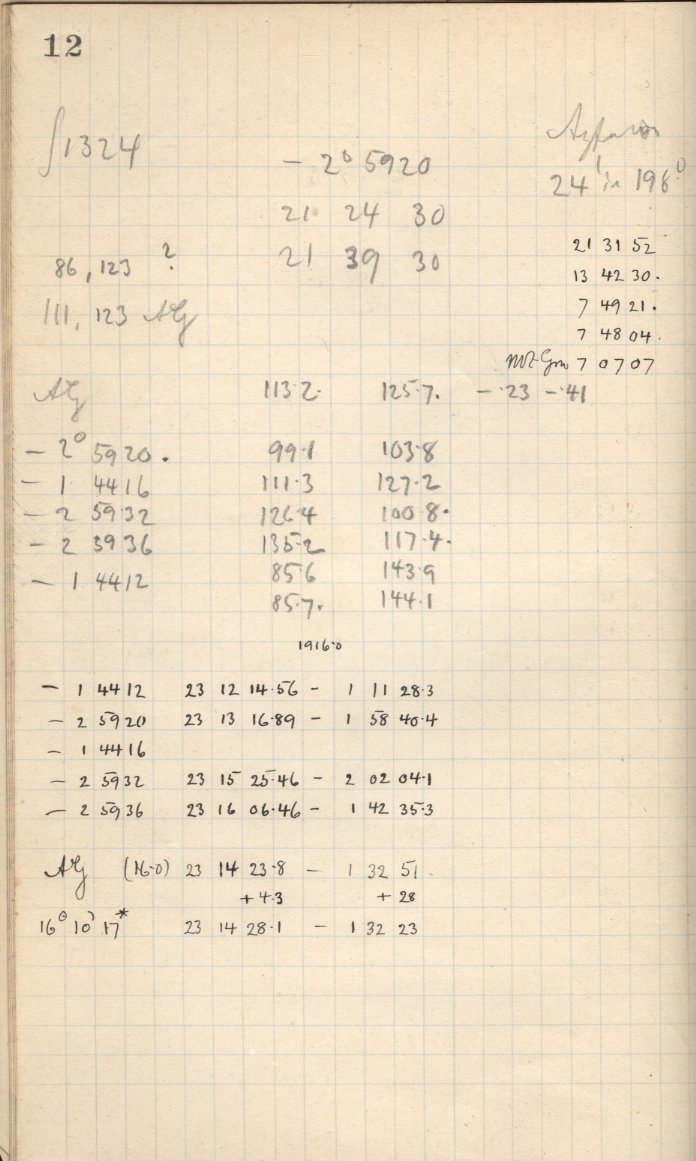 12
∫1324
- 2° 5920
21 24 30
24' in 196°
86, 123 ?
21 39 30
111, 123 AG
21 31 52
13 42 30.
7 49 21.
7 48 04.
7 07 07
AG 113.2. 125.7. - .23 - .41
- 2° 5920. 99.1 103.8
- 1 4416 111.3 127.2
- 2 5932 126.4 100.8.
- 2 5936 135.2 117.4.
- 1 4412 85.6 143.9
85.7. 144.1
1916.0
- 1 4412 23 12 14.56 - 1 11 28.3
- 2 5920 23 13 16.89 - 1 58 40.4
- 1 4416
- 2 5932 23 15 25.46 - 2 02 04.1
- 2 5936 23 16 06.46 - 1 42 35.3
AG (16.0) 23 14 23.8 - 1 32 51
+ 4.3 + 28
16° 10' 17* 23 14 28.1 - 1 32 23